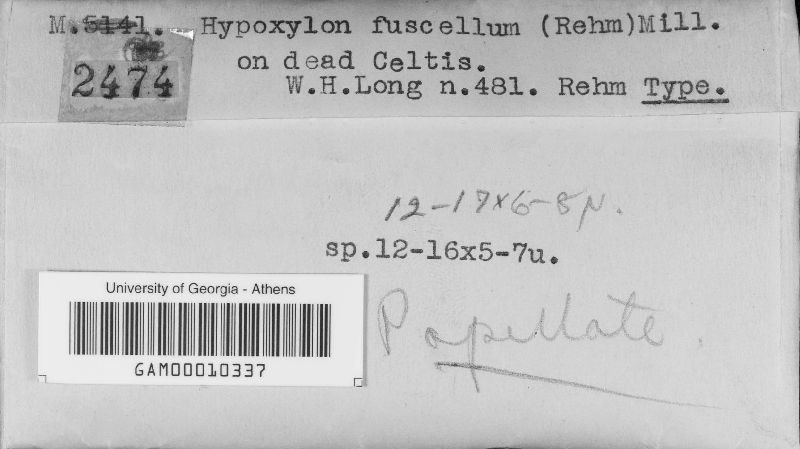 M.5141. Hypoxylon fuscellum (Rehm)Mill.
2474
on dead Celtis.
W.H.Long n.481. Rehm Type.
12-17x6-8μ.
sp.12-16x5-7u.
Papillate.
University of Georgia - Athens
GAM00010337